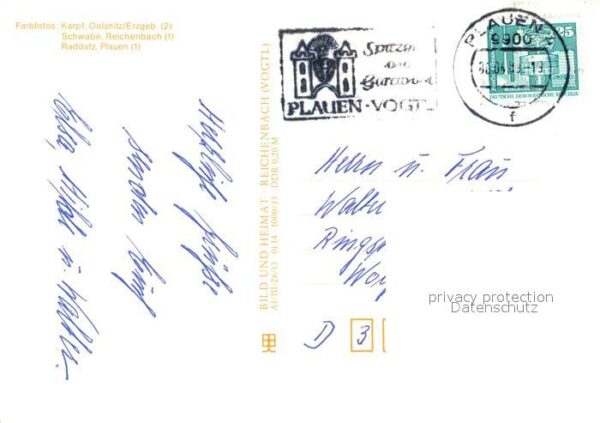 Farbfotos: Karpf, Oelsnitz/Erzgeb. (2)
Schwabe, Reichenbach (1)
Raddatz, Plauen (1)
Spitzen
und
Gardinen
PLAUEN · VOGTL.
PLAUEN
9900
f
25
DEUTSCHE DEMOKRATISCHE REPUBLIK
Herzliche Grüße
senden Euch
u. Walter.
BILD UND HEIMAT REICHENBACH (VOGTL)
A1/III/26/13 0114 1000/33 DDR 0,20 M
Herrn u. Frau
Walter
D 3
privacy protection
Datenschutz